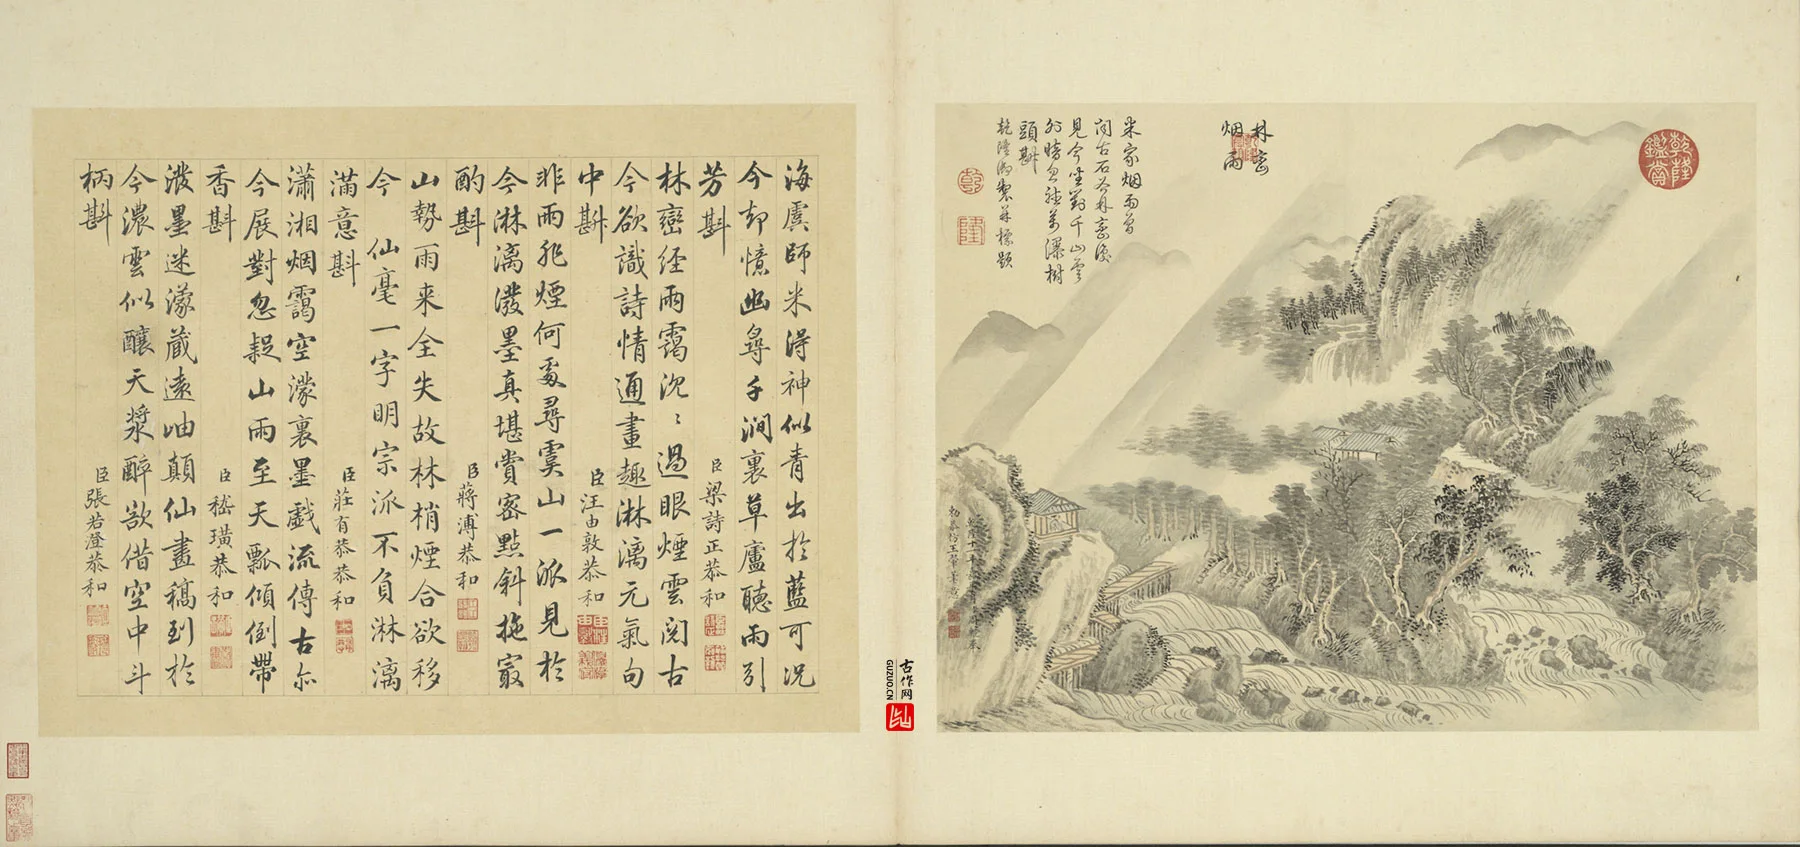 乾隆鑑賞
林巒
烟雨
米家烟雨曾
問古石谷林巒後
見今坐對千山雲
萬瀑樹
頭斟
乾隆御製并標題
乾
隆
海虞師米得神似青出於藍可況
今却憶幽尋千澗裏草廬聽雨引
芳斟
臣梁詩正恭和
林巒經雨靄沈〻過眼煙雲閱古
今欲識詩情通畫趣淋漓元氣句
中斟
臣汪由敦恭和
非雨非煙何處尋虞山一派見於
今淋漓潑墨真堪賞密點斜拖最
酌斟
臣蔣溥恭和
山勢雨来全失故林梢煙合欲移
今 仙毫一字明宗派不負淋漓
滿意斟
臣莊有恭恭和
瀟湘烟靄空濛裏墨戲流傳古亦
今展對忽疑山雨至天瓢傾倒帶
香斟
臣嵇璜恭和
潑墨迷濛藏遠岫顛仙畫稿到於
今濃雲似釀天漿醉欲借空中斗
柄斟
臣張若澄恭和
古作网
GUZUO.CN